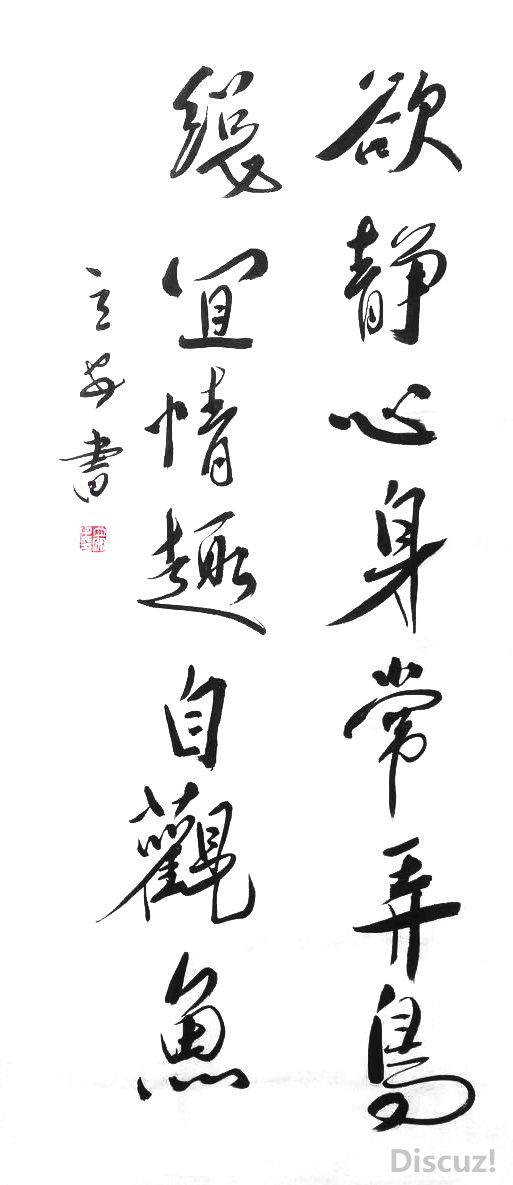 欲靜心身常弄鳥
緩宜情趣自觀魚
立安書
Discuz!